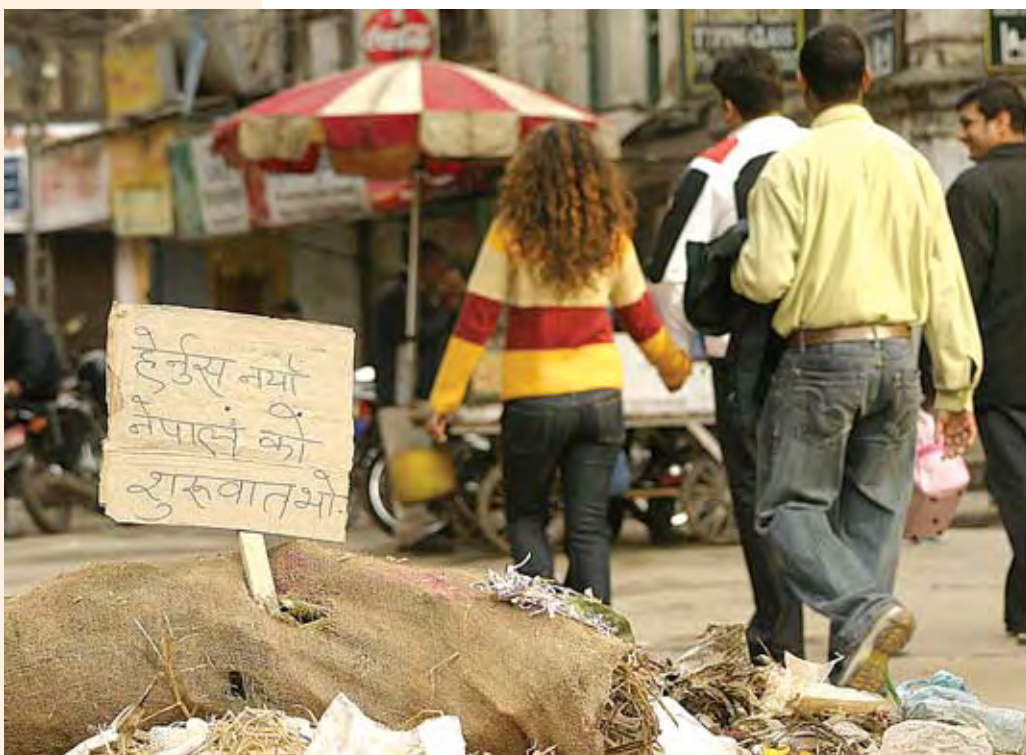 Coca-Cola
TYPING CLASS
हेर्नुस नयाँ
नेपाल को
शुरूवात भो.